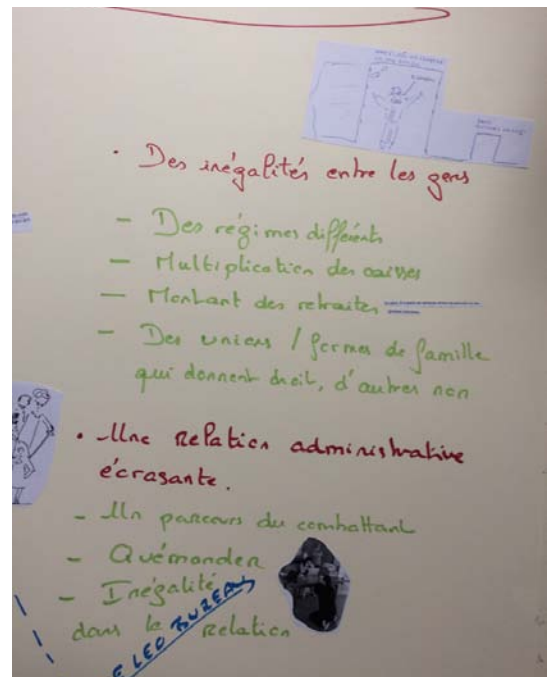 · Des inégalités entre les gens
- Des régimes différents
- Multiplication des caisses
- Montant des retraites
- Des unions / formes de famille
qui donnent droit, d'autres non
· Une relation administrative
écrasante.
- Un parcours du combattant
- Quémander
- Inégalité
dans la relation
LEO BUREAU